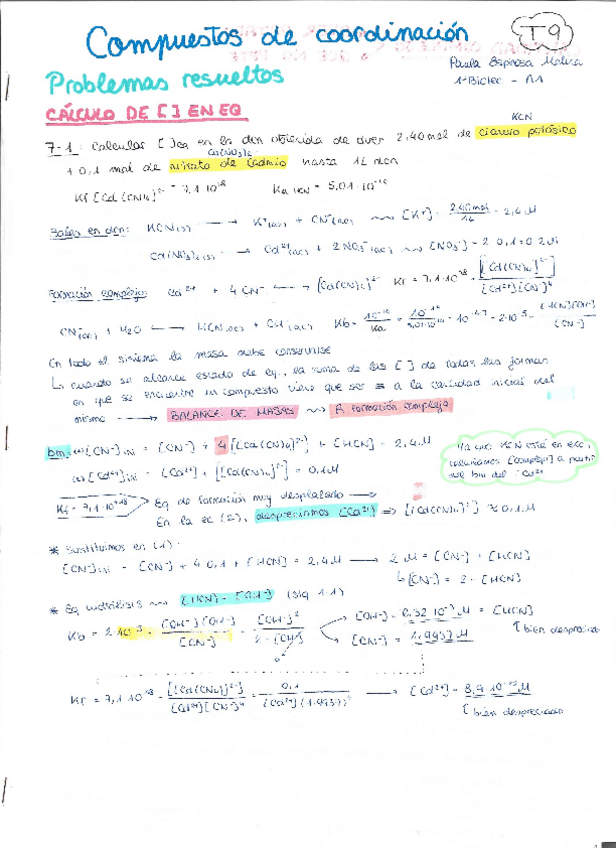 Compuestos de coordinación
T9
Paula Espinosa Molina
1º Biotec - A1
Problemas resueltos
CÁLCULO DE [ ] EN EQ
KCN
7-1. Calcular [ ]eq en la dcn obtenida de dver 2,40 mol de cianuro potásico
Cd(NO3)2
+ 0,1 mol de nitrato de cadmio hasta 1L dcn
Kf [Cd(CN)4]2- = 7,1·10^18 Ka HCN = 5,01·10^-10
Sales en dcn: KCN(s) → K+(ac) + CN-(ac) ⇝ [K+] = 2,40 mol / 1L = 2,4 M
Cd(NO3)2(s) → Cd2+(ac) + 2NO3-(ac) ⇝ [NO3-] = 2·0,1 = 0,2 M
Formación complejo: Cd2+ + 4CN- ↔ [Cd(CN)4]2- Kf = 7,1·10^18 = [[Cd(CN)4]2-] / [Cd2+][CN-]^4
CN-(ac) + H2O ↔ HCN(ac) + OH-(ac) Kb = 10^-14 / Ka = 10^-14 / 5,01·10^-10 = 10^-4,7 = 2·10^-5 = [HCN][OH-] / [CN-]
En todo el sistema la masa debe conservarse
↳ cuando se alcance estado de eq, la suma de las [ ] de todas las formas
en que se encuentre un compuesto tiene que ser = a la cantidad inicial del
mismo → BALANCE DE MASAS ⇝ A formación complejo
bm (1) [CN-]ini = [CN-] + 4[[Cd(CN)4]2-] + [HCN] = 2,4 M
(2) [Cd2+]ini = [Cd2+] + [[Cd(CN)4]2-] = 0,1 M
Ya que KCN está en exc, calculamos [complejo] a partir del bm del Cd2+
Kf = 7,1·10^18 Eq de formación muy desplazado →
En la ec (2), despreciamos [Cd2+] ⇒ [[Cd(CN)4]2-] ≈ 0,1 M
* Sustituimos en (1):
[CN-]ini = [CN-] + 4·0,1 + [HCN] = 2,4 M → 2 M = [CN-] + [HCN]
↳ [CN-] = 2 - [HCN]
* Eq hidrólisis ⇝ [HCN] = [OH-] (stq 1:1)
Kb = 2·10^-5 = [OH-][OH-] / [CN-] = [OH-]^2 / 2-[OH-]
[OH-] = 6,32·10^-3 M = [HCN]
↑ bien despreciado
[CN-] = 1,9937 M
Kf = 7,1·10^18 = [[Cd(CN)4]2-] / [Cd2+][CN-]^4 = 0,1 / [Cd2+](1.9937)^4 → [Cd2+] = 8,9·10^-22 M
↑ bien despreciado